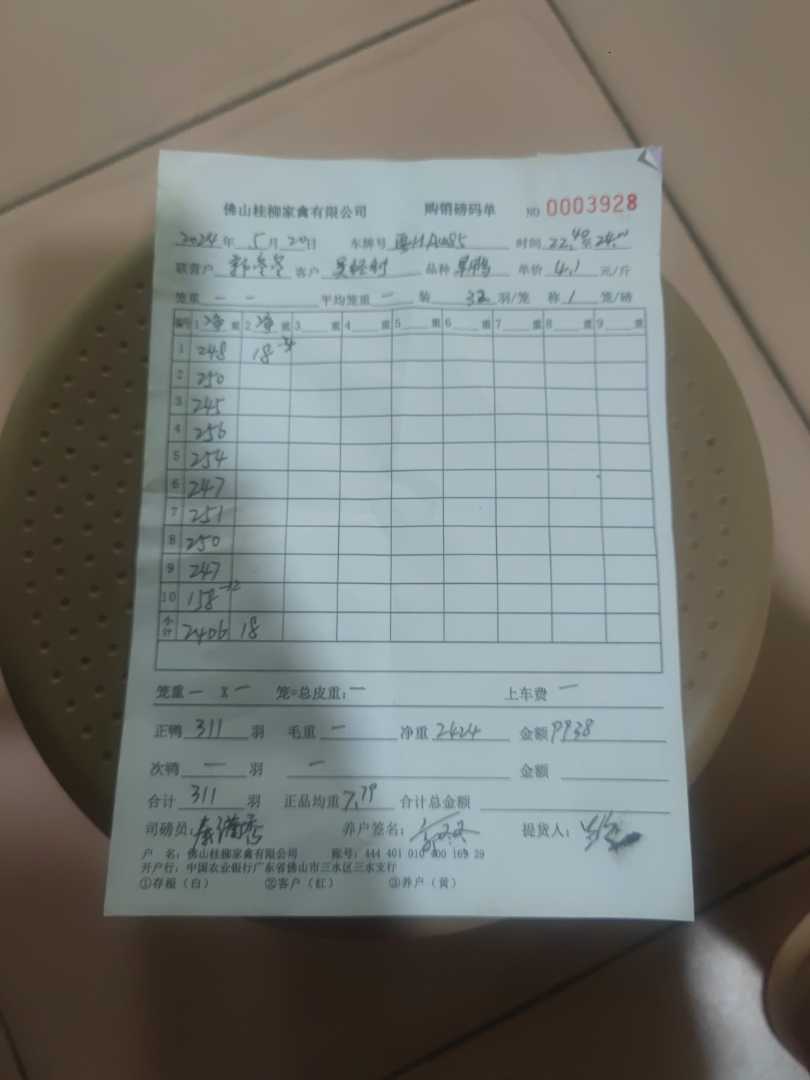 佛山桂柳家禽有限公司 购销磅码单 NO 0003928
2024年 5月20日 车牌号 时间 22:40至24:00
联营户 客户 品种 单价 4.1 元/斤
笼重 — — 平均笼重 — 装 32 羽/笼 称 1 笼/磅
编号 1 净 重 2 净 重 3 重 4 重 5 重 6 重 7 重 8 重 9 重
1 248 18
2 250
3 245
4 256
5 254
6 247
7 251
8 250
9 247
10 158
小计 2406 18
笼重 — X — 笼=总皮重: — 上车费 —
正鸭 311 羽 毛重 — 净重 2424 金额 9938
次鸭 — 羽 — 金额
合计 311 羽 正品均重 7.79 合计总金额
司磅员: 养户签名: 提货人:
户 名: 佛山桂柳家禽有限公司 账号: 444 401 010 400 169 29
开户行: 中国农业银行广东省佛山市三水区三水支行
①存根（白） ②客户（红） ③养户（黄）